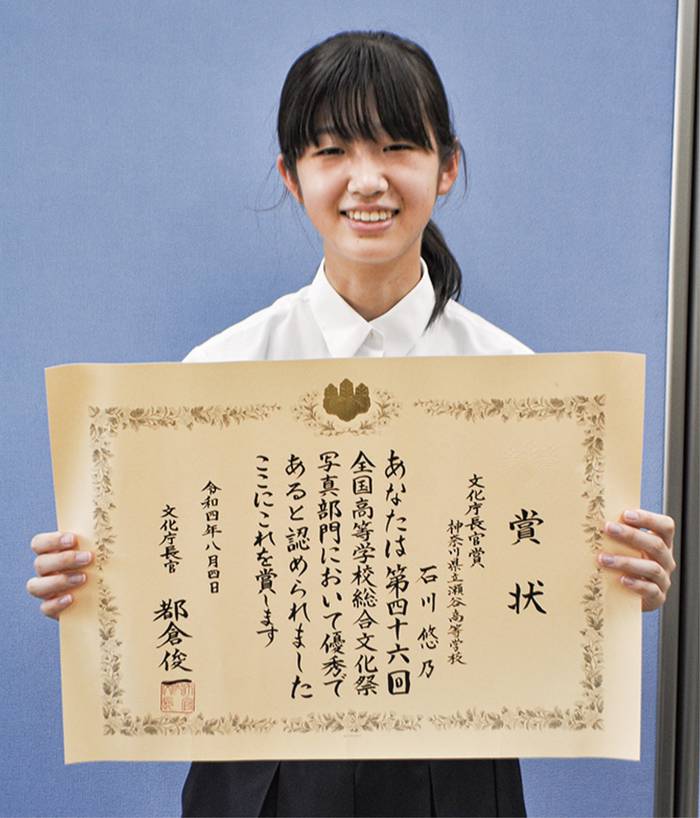 賞状
文化庁長官賞
神奈川県立瀬谷高等学校
石川悠乃
あなたは第四十六回
全国高等学校総合文化祭
写真部門において優秀で
あると認められました
ここにこれを賞します
令和四年八月四日
文化庁長官
都倉俊一